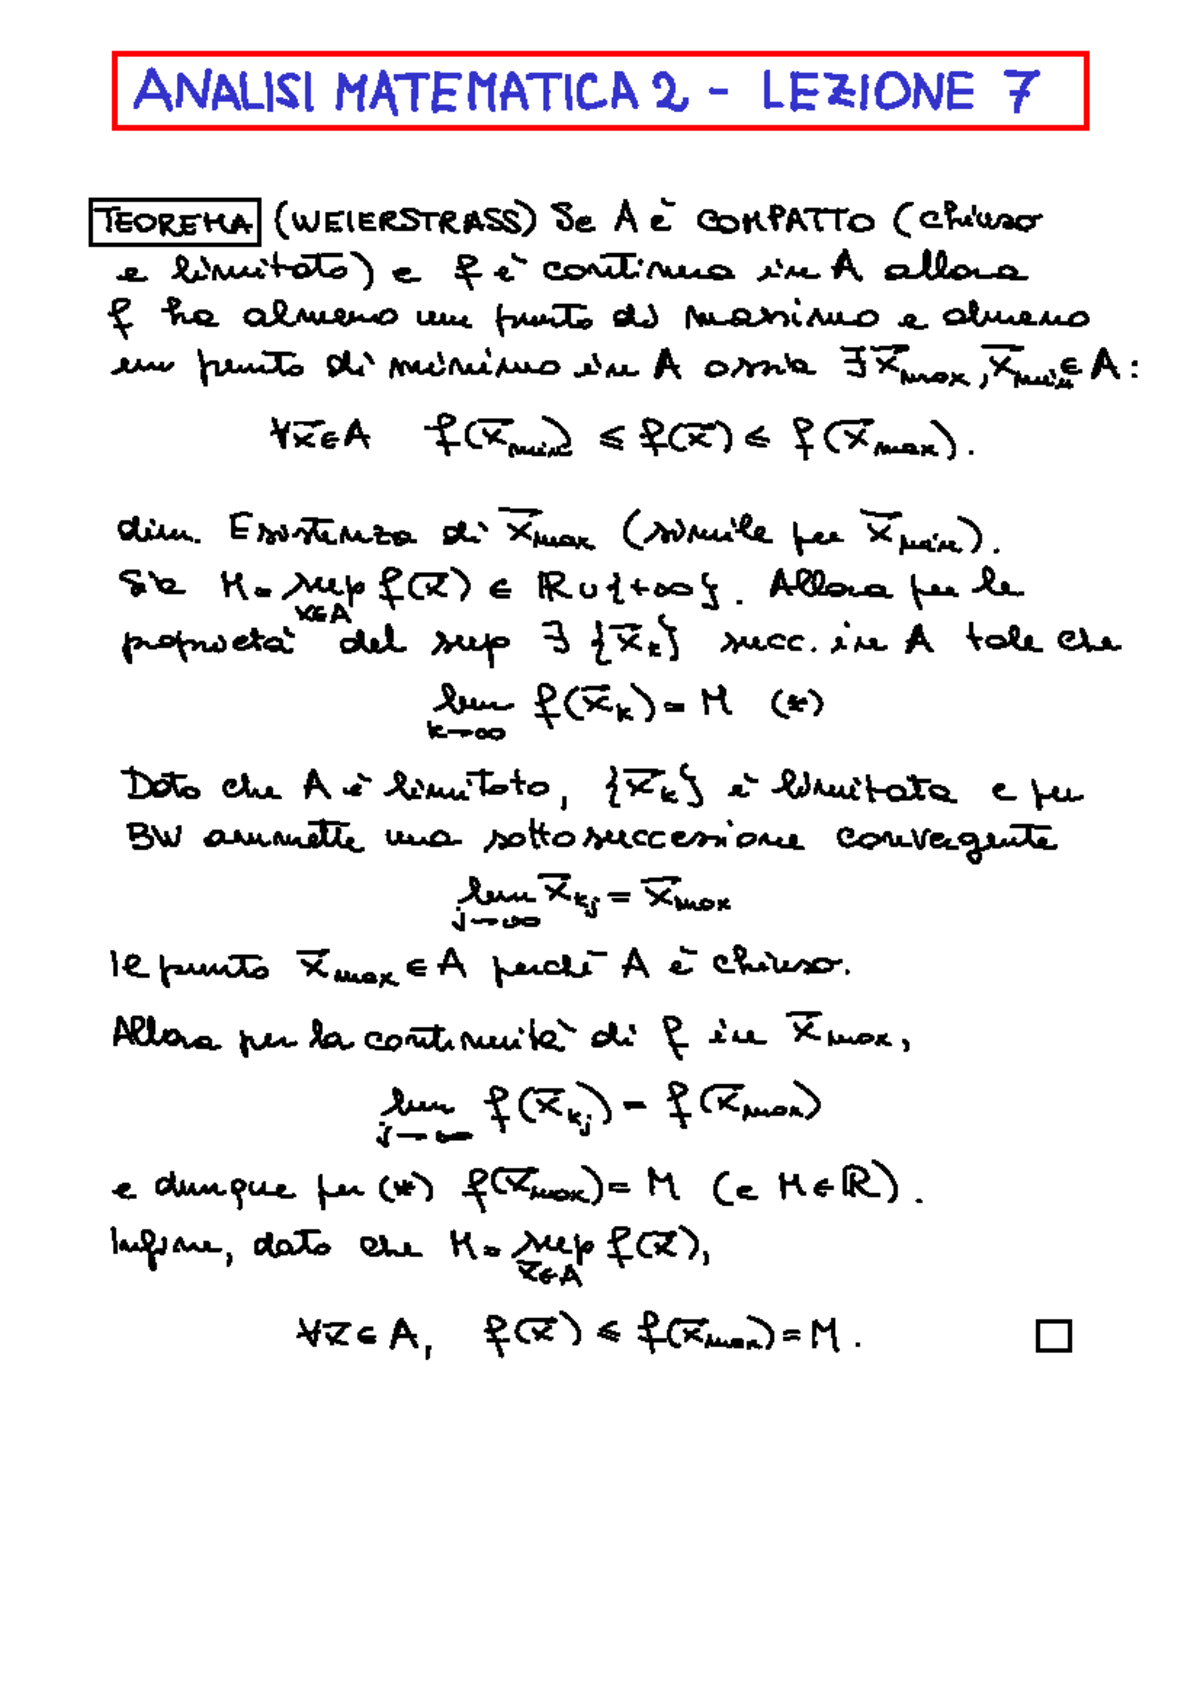 ANALISI MATEMATICA 2 - LEZIONE 7
TEOREMA (WEIERSTRASS) Se A è COMPATTO (chiuso
e limitato) e f è continua in A allora
f ha almeno un punto di massimo e almeno
un punto di minimo in A ossia ∃ x̄_max, x̄_min ∈ A :
∀x̄∈A f(x̄_min) ≤ f(x̄) ≤ f(x̄_max).
dim. Esistenza di x̄_max (simile per x̄_min).
Sia M = sup_{x∈A} f(x̄) ∈ ℝ∪{+∞}. Allora per le
proprietà del sup ∃ {x̄_k} succ. in A tale che
lim_{k→∞} f(x̄_k) = M (*)
Dato che A è limitato, {x̄_k} è limitata e per
BW ammette una sottosuccessione convergente
lim_{j→∞} x̄_{k_j} = x̄_max
Il punto x̄_max ∈ A perché A è chiuso.
Allora per la continuità di f in x̄_max,
lim_{j→∞} f(x̄_{k_j}) = f(x̄_max)
e dunque per (*) f(x̄_max) = M (e M∈ℝ).
Infine, dato che M = sup_{x̄∈A} f(x̄),
∀x̄∈A, f(x̄) ≤ f(x̄_max) = M. □